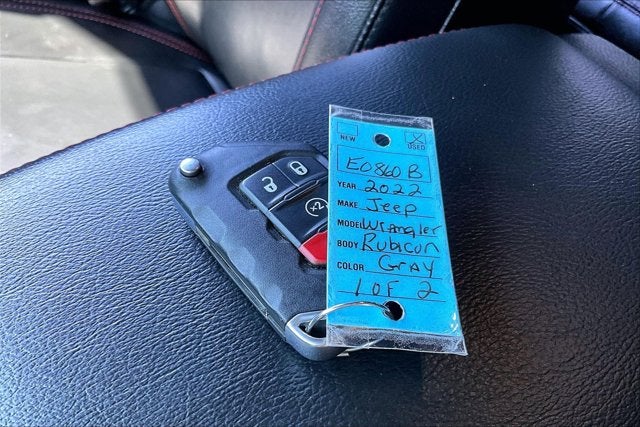 NEW USED
E0860B
YEAR 2022
MAKE Jeep
MODEL Wrangler
BODY Rubicon
COLOR Gray
1 OF 2
x2